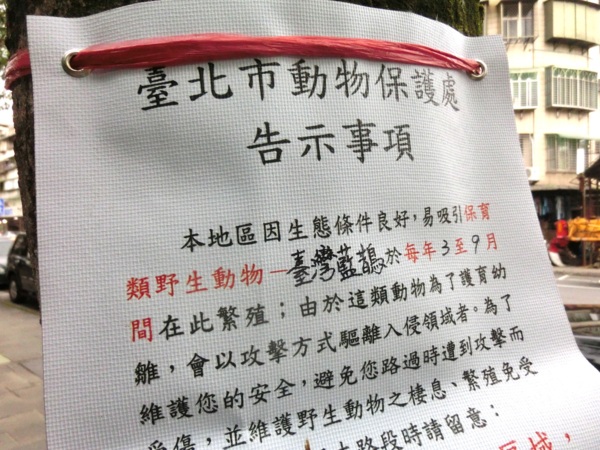 臺北市動物保護處
告示事項
本地區因生態條件良好，易吸引保育
類野生動物—臺灣藍鵲於每年3至9月
間在此繁殖；由於這類動物為了護育幼
雛，會以攻擊方式驅離入侵領域者。為了
維護您的安全，避免您路過時遭到攻擊而
受傷，並維護野生動物之棲息、繁殖免受
路段時請留意：
區域，